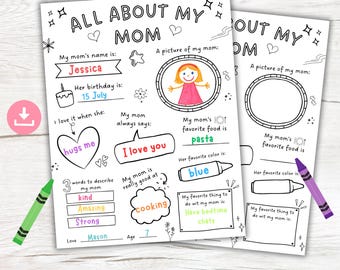 ALL ABOUT MY
MOM
My mom's name is:
Jessica
Her birthday is:
15 July
A picture of my mom:
I love it when she:
hugs me
My mom
always says:
I love you
My mom's
favorite food is
pasta
3 words to describe
my mom
kind
Amazing
Strong
My mom is
really good at
cooking
Her favorite color is
blue
My favorite thing to
do wit my mom is:
Have bedtime
chats
Love Mason Age 7
ALL ABOUT MY
MOM
A picture of my mom:
My mom's
favorite food is
Her favorite color is:
My favorite thing to
do wit my mom is: